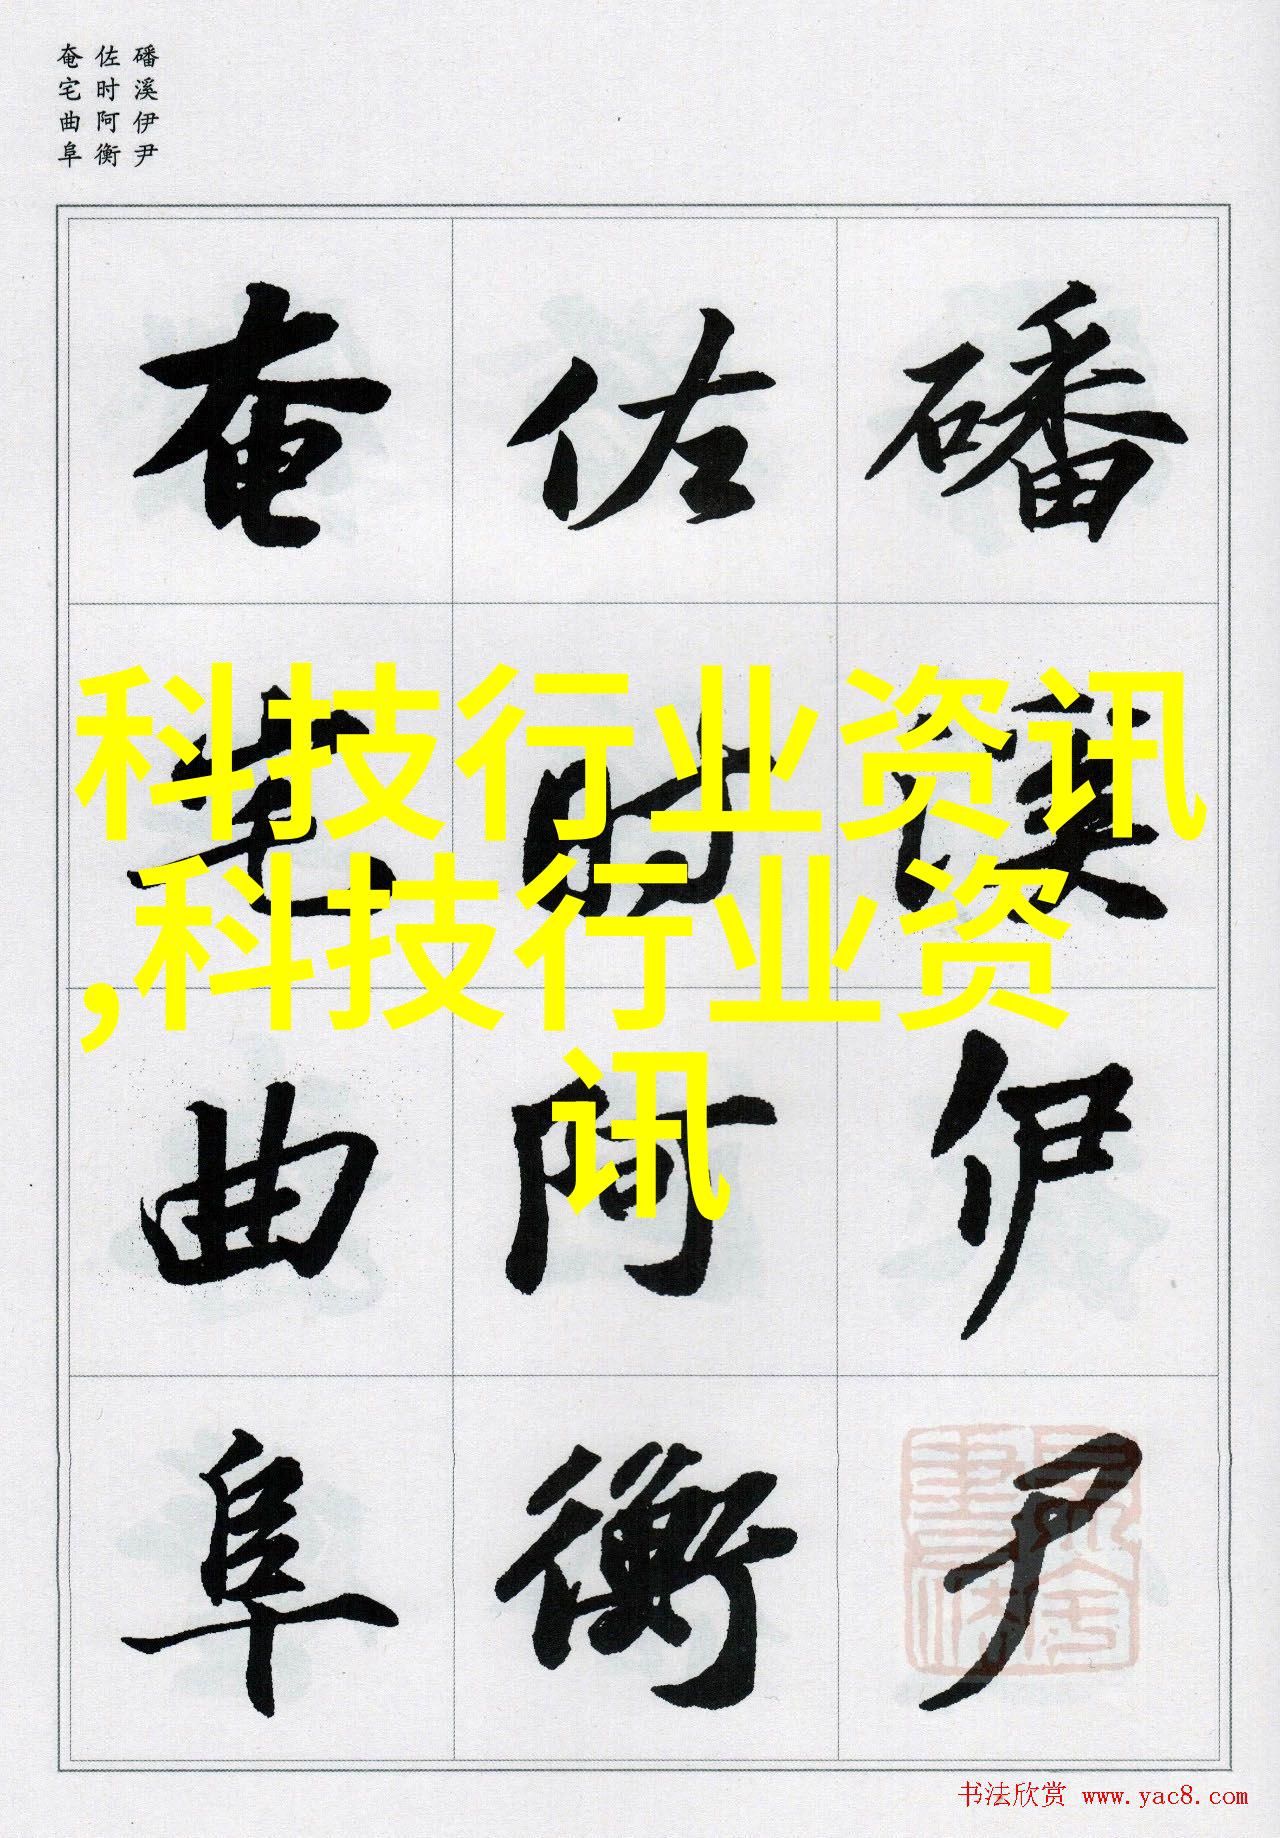 磻溪伊尹
佐时阿衡
奄宅曲阜
磻溪伊尹
佐时阿衡
奄宅曲阜
科技行业资讯
,科技行业资
讯
书法欣赏 www.yac8.com